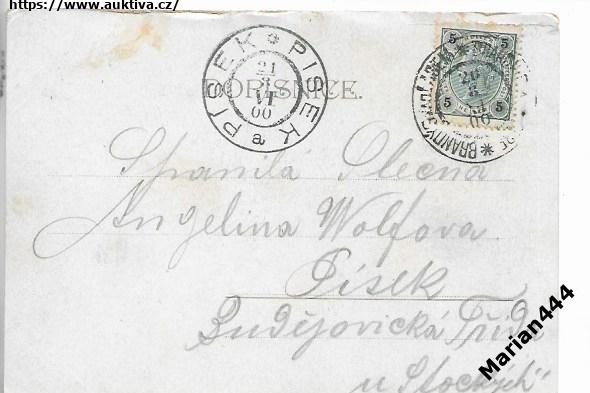 https://www.auktiva.cz/
PISEK * PISEK a
21 3 VI 00
DOPISNICE.
5 5
5 5
BRANDÝS
00
Spanilá Slečna
Angelina Wolfova
Písek
Budějovická Třída
u Stockých"
Marian444